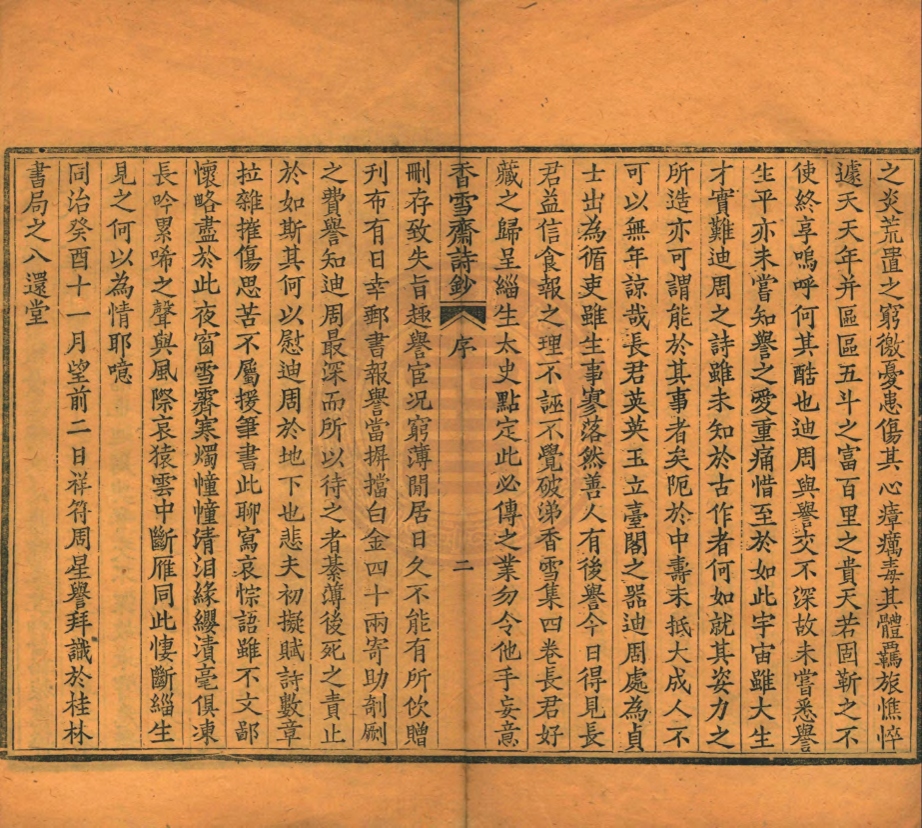 之炎荒置之窮徼憂患傷其心瘴癘毒其體羈旅憔悴
遽夭天年并區區五斗之富百里之貴天若固靳之不
使終享嗚呼何其酷也迪周與譽交不深故未嘗悉譽
生平亦未嘗知譽之愛重痛惜至於如此宇宙雖大生
才實難迪周之詩雖未知於古作者何如就其姿力之
所造亦可謂能於其事者矣阨於中壽未抵大成人不
可以無年諒哉長君英英玉立臺閣之器迪周處為貞
士出為循吏雖生事寥落然善人有後譽今日得見長
君益信食報之理不誣不覺破涕香雪集四卷長君好
藏之歸呈緇生太史點定此必傳之業勿令他手妄意
香雪齋詩鈔 序 二
刪存致失旨趣譽官况窮薄閒居日久不能有所佽贈
刊布有日幸郵書報譽當摒擋白金四十兩寄助剞劂
之費譽知迪周最深而所以待之者綦薄後死之責止
於如斯其何以慰迪周於地下也悲夫初擬賦詩數章
拉雜摧傷思苦不屬援筆書此聊寫哀悰語雖不文鄙
懷略盡於此夜窗雪霽寒燭幢幢清泪緣纓漬毫俱凍
長吟累唏之聲與風際哀猿雲中斷雁同此悽斷緇生
見之何以為情耶噫
同治癸酉十一月望前二日祥符周星譽拜識於桂林
書局之八還堂